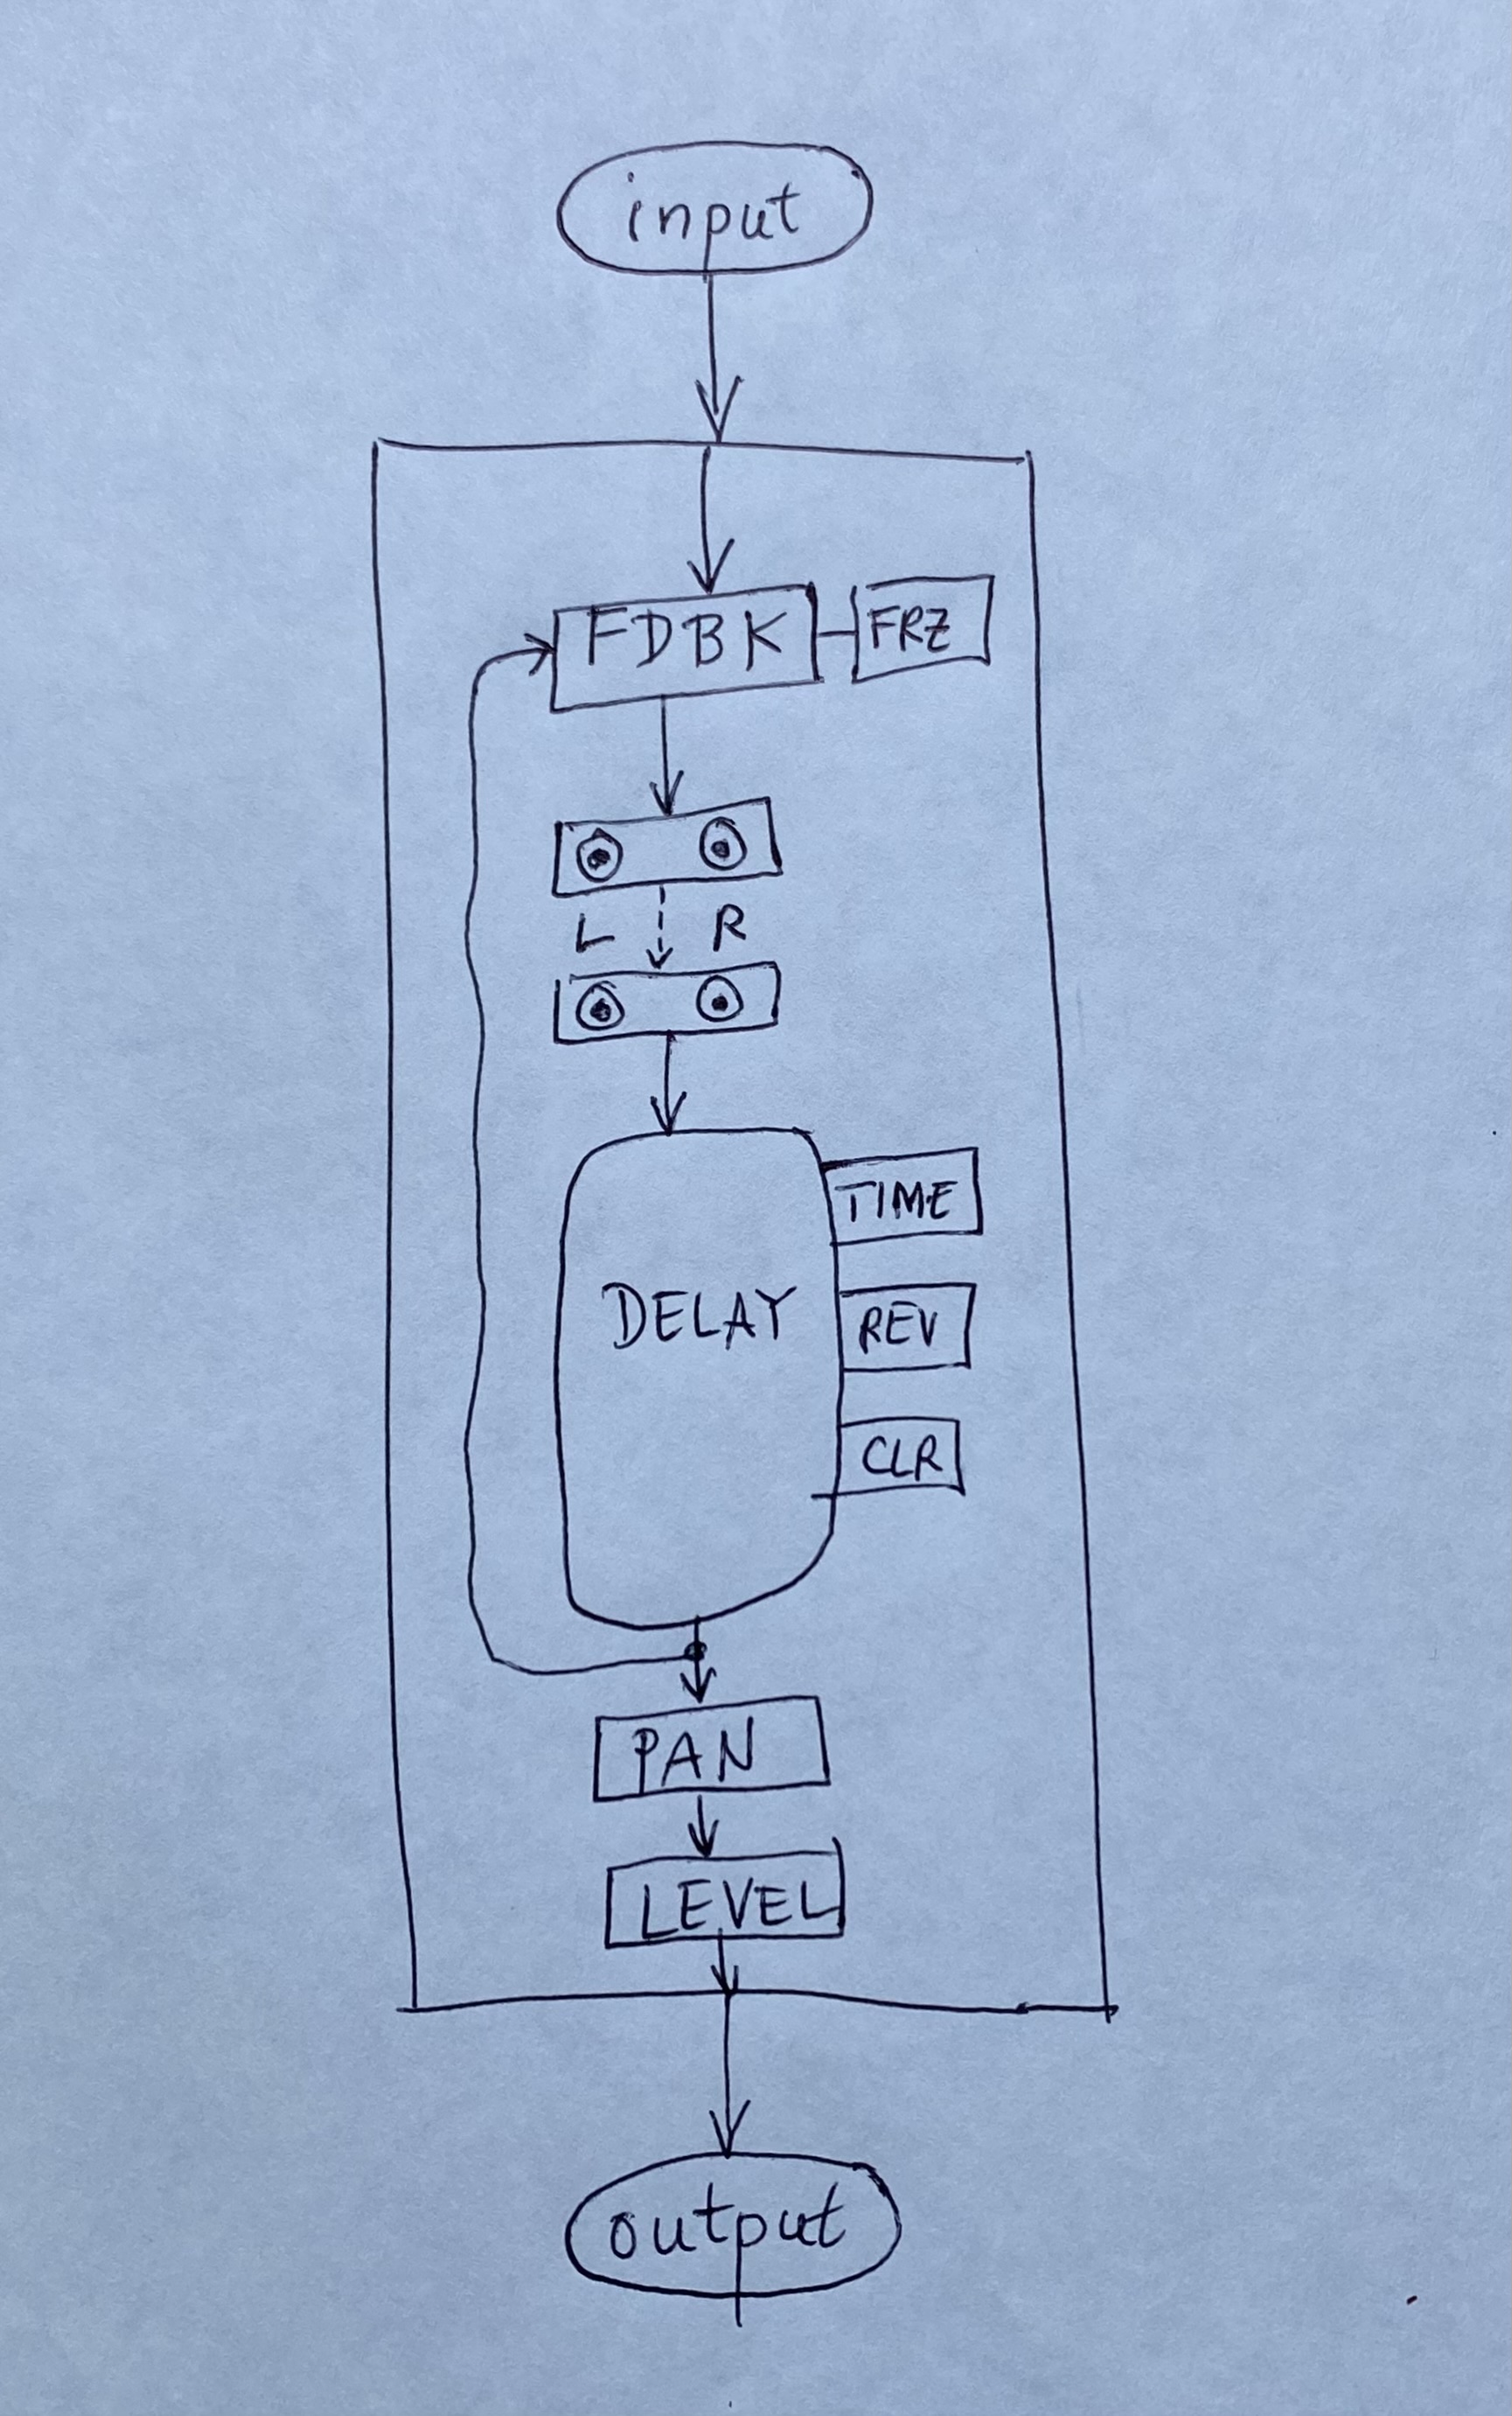 input
FDBK
FRZ
L R
TIME
DELAY
REV
CLR
PAN
LEVEL
output